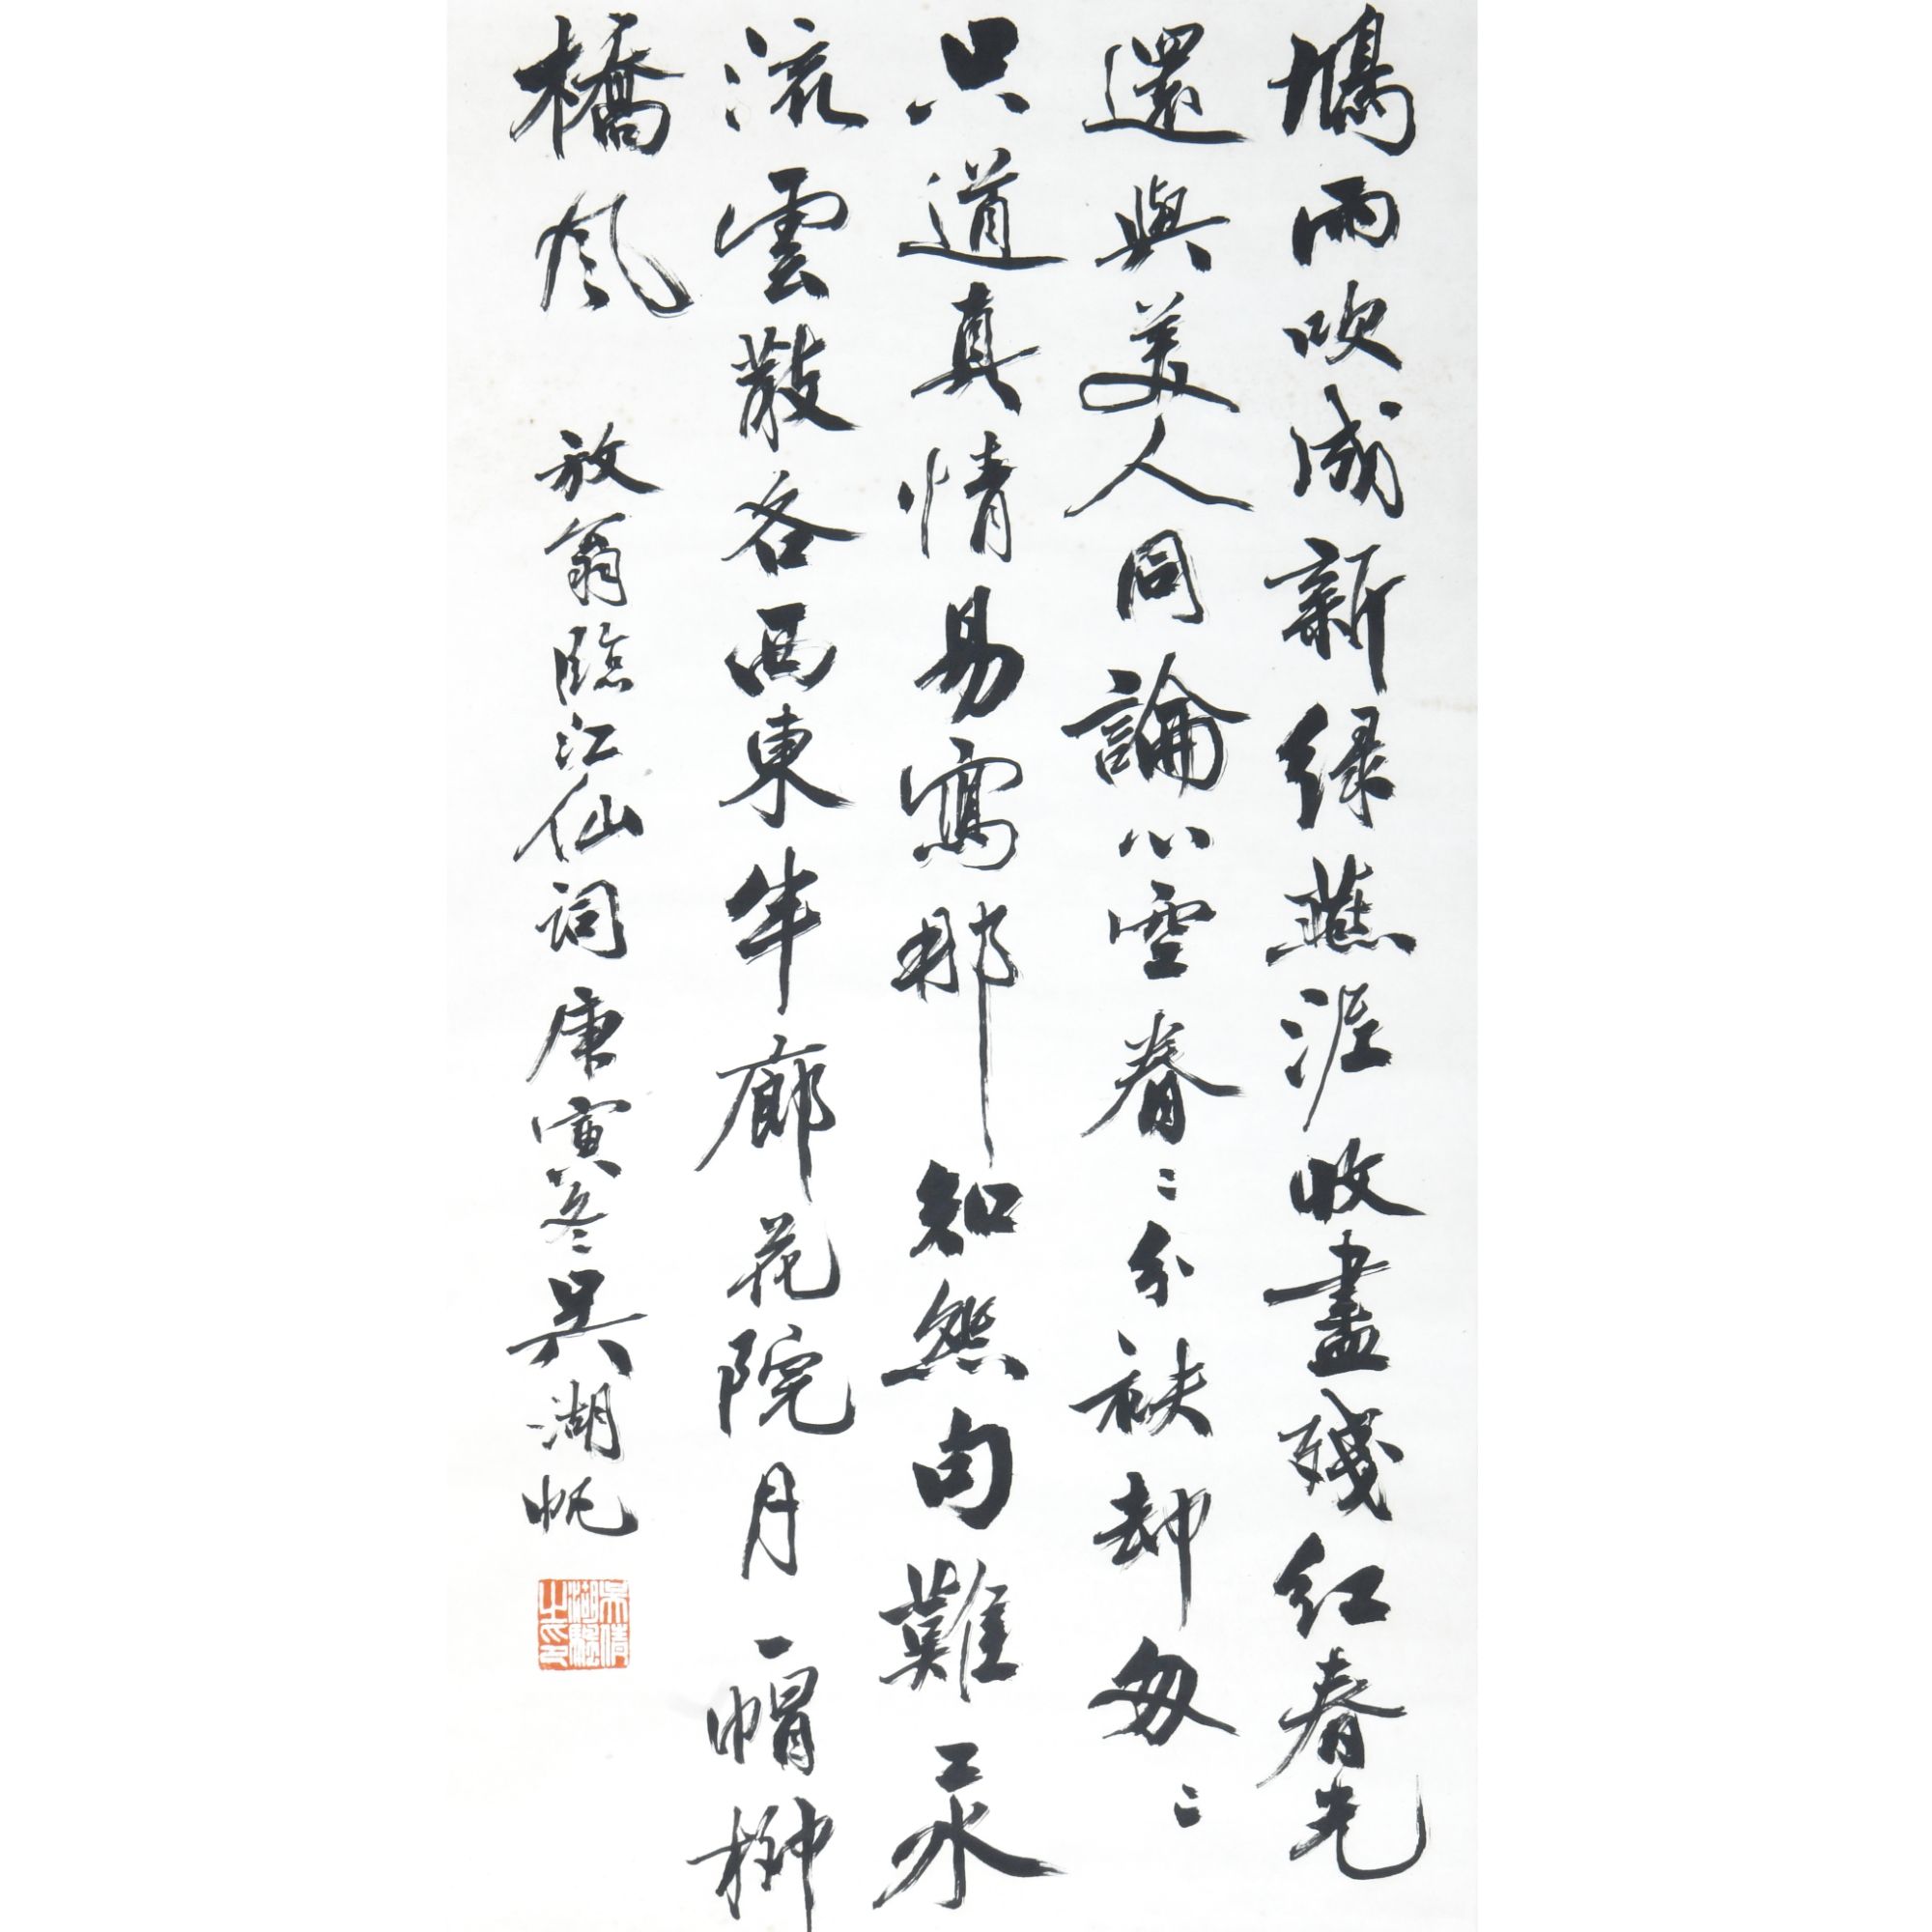 鳩雨吹成新綠燕泥收盡殘紅春光
還與美人同論心空眷〻分袂却匆〻
只道真情易寫那知怨句難工水
流雲散各西東半廊花院月一帽柳
橋風 放翁臨江仙詞 庚寅冬 吳湖帆
吳倩湖颿之印